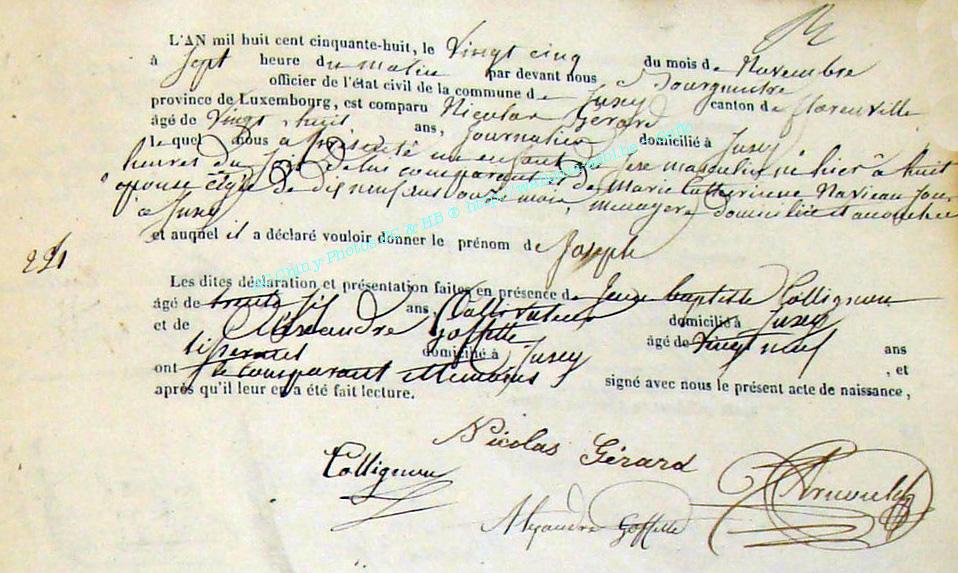 L'AN mil huit cent cinquante-huit, le Vingt cinq du mois de Novembre
à Sept heure du matin par devant nous Bourgmestre
officier de l'état civil de la commune de Jusey canton de Florenville
province de Luxembourg, est comparu Nicolas Gérard
âgé de Vingt huit ans, Journalier domicilié à Jusey
lequel nous a présenté un enfant du sexe masculin né hier à huit
heures du de lui comparant et de Marie Catherine Naviaux son
épouse âgée de dix neuf ans onze mois, menagère domiciliée et accouchée
à Jusey
et auquel il a déclaré vouloir donner le prénom de Joseph
221
Les dites déclaration et présentation faites en présence de Jean baptiste Collignon
âgé de trente six ans, Cultivateur domicilié à Jusey
et de Alexandre Goffette âgé de Vingt neuf ans
tisserand domicilié à Jusey , et
ont le comparant et témoins signé avec nous le présent acte de naissance,
après qu'il leur en a été fait lecture.
Nicolas Gérard
Collignon
Alexandre Goffette
Arnould